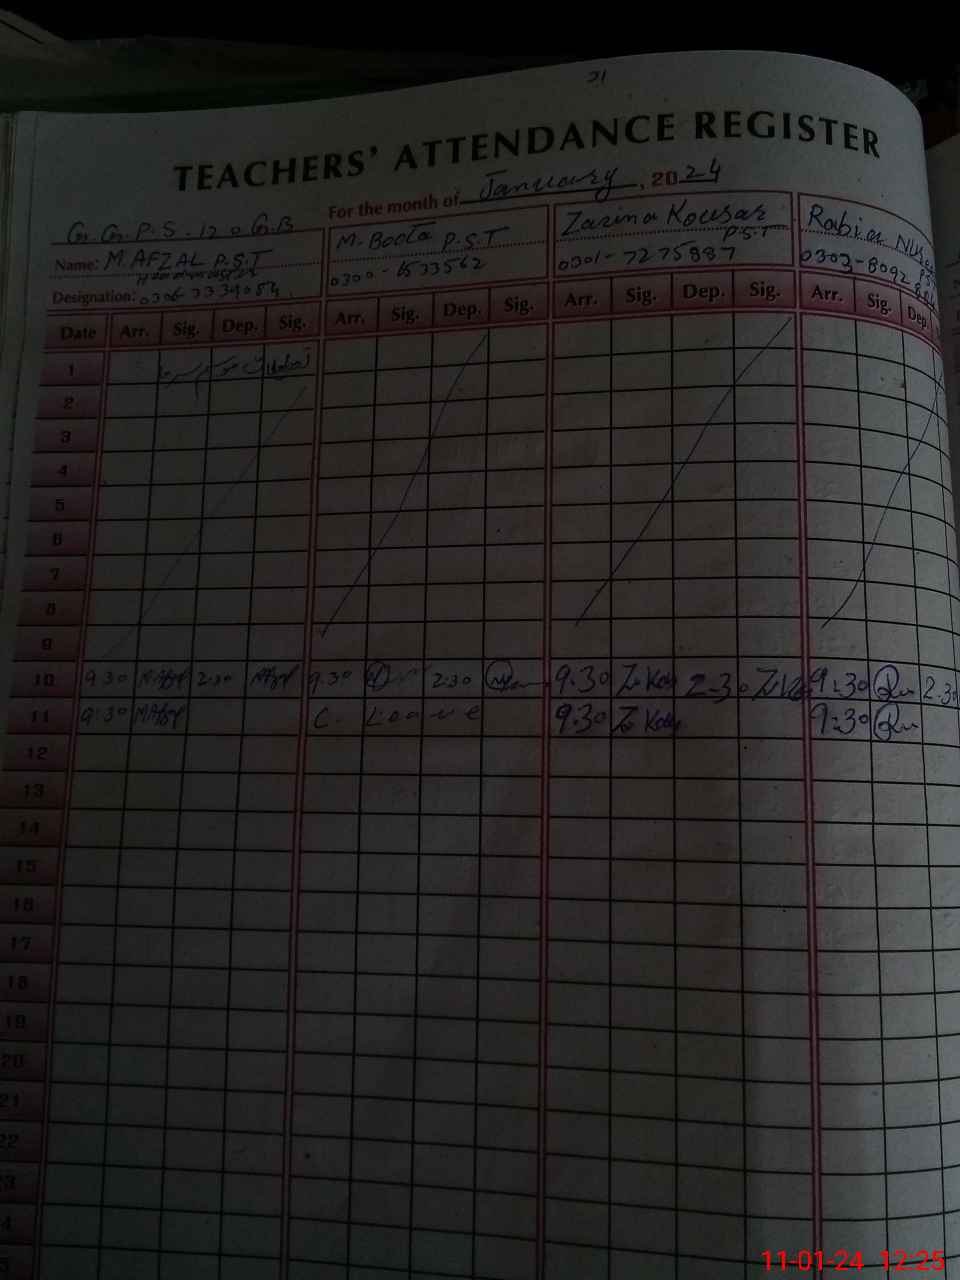 21
TEACHERS' ATTENDANCE REGISTER
For the month of January, 2024
G.G.P.S. 120 G.B
Name: M. AFZAL P.S.T
Designation: 0306-3339054
M. Boota P.S.T
0300-6533562
Zarina Kousar
P.S.T
0301-7275887
Rabia
0303-8092
Date Arr. Sig. Dep. Sig. Arr. Sig. Dep. Sig. Arr. Sig. Dep. Sig. Arr. Sig. Dep.
1
2
3
4
5
6
7
8
9
10 9:30 M Afzal 2:30 Afzal 9.30 2:30 9:30 Z. Kou 2:30 9:30 2.30
11 9:30 M Afzal C. Leave 9:30 Z. Kou 9:30
12
13
14
15
16
17
18
19
20
21
22
3
4
5
11-01-24 12:25